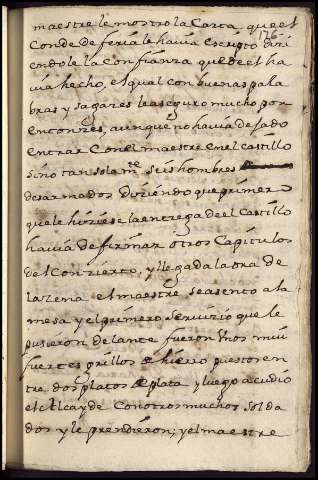 maestre le mostro la Carta, que el
176
Conde de feria le havia escripto diri
endole la Confianza que de el ha
via hecho, el qual con buenas pala
bras y sagazes le aseguro mucho por
entonzes, aunque no havia dejado
entrar Con el maestre en el castillo
sino tan sola mte seis hombres
desarmados diziendo que primero
que le hiziese la entrega de el Castillo
havia de firmar otros Capitulos
del Conzierto, y llegada la ora de
la zena el maestre se asento a la
mesa y el primero servizio que le
pusieron delante fueron unos mui
fuertes grillos de hierro puestos en
tre dos platos de plata, y luego acudio
el Alcayde Con otros muchos solda
dos y le prendieron; y el maestre